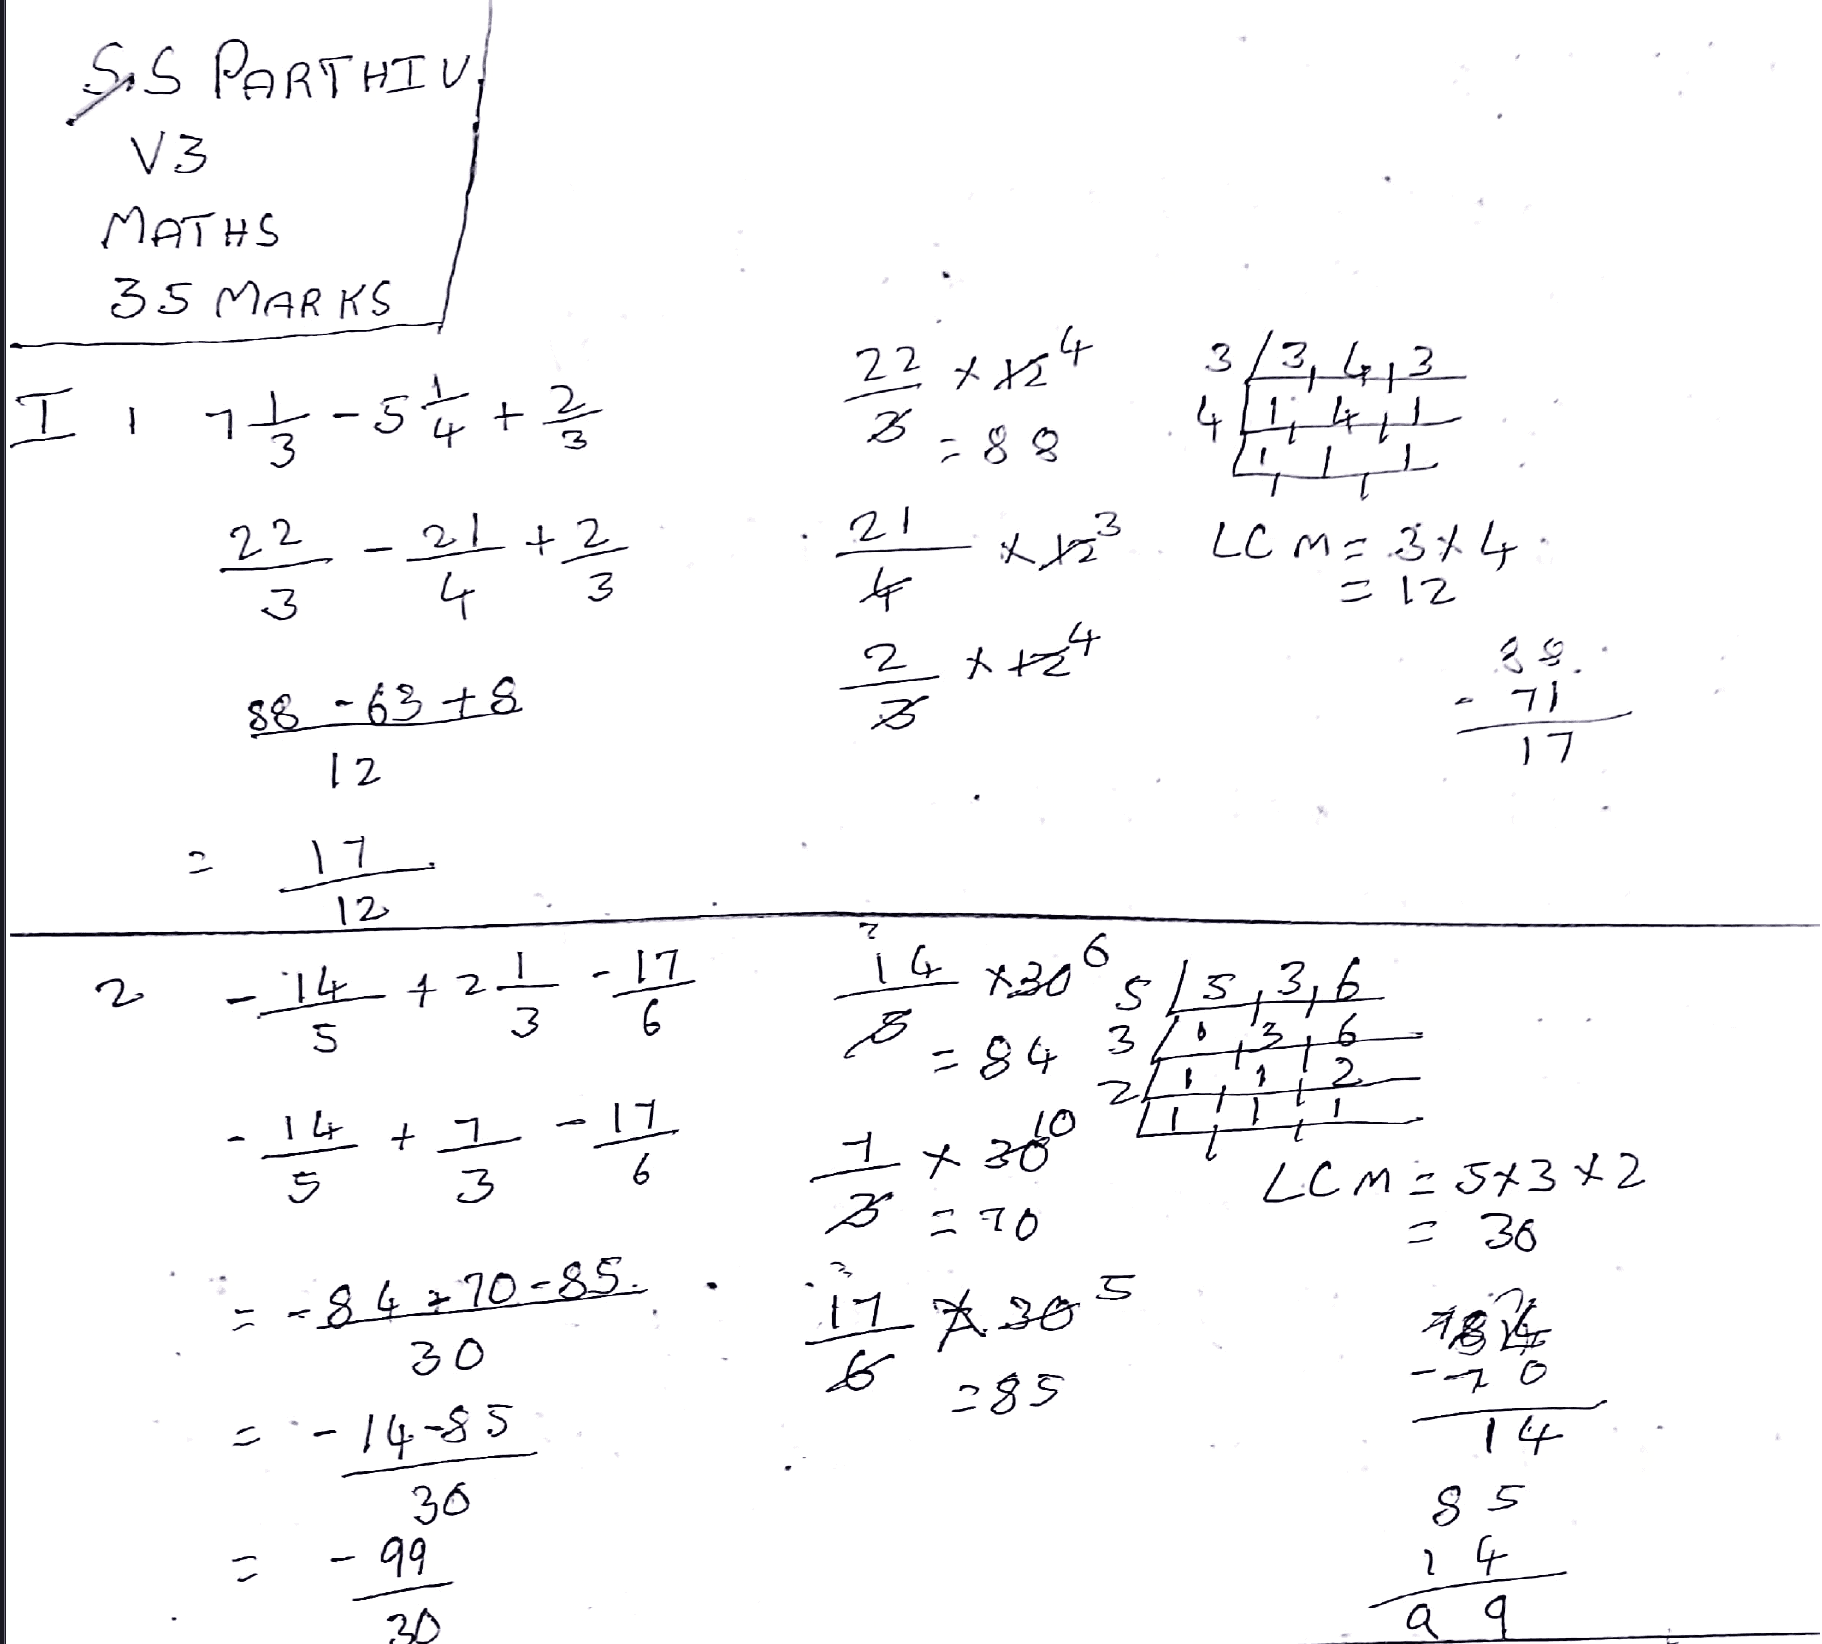 S.S PARTHIV
V3
MATHS
35 MARKS
I 1 7 1/3 - 5 1/4 + 2/3
22/3 - 21/4 + 2/3
88 - 63 + 8 / 12
= 17/12
22/3 × 12 4
= 88
21/4 × 12 3
2/3 × 12 4
3 | 3, 4, 3
4 | 1, 4, 1
1, 1, 1
LCM = 3 × 4
= 12
88
- 71
17
2 - 14/5 + 2 1/3 - 17/6
- 14/5 + 7/3 - 17/6
= - 84 + 70 - 85 / 30
= - 14 - 85 / 30
= - 99/30
2
14/5 × 30 6
= 84
7/3 × 30 10
= 70
3
17/6 × 30 5
= 85
5 | 5, 3, 6
3 | 1, 3, 6
2 | 1, 1, 2
1, 1, 1
LCM = 5 × 3 × 2
= 30
84
- 70
14
85
14
99